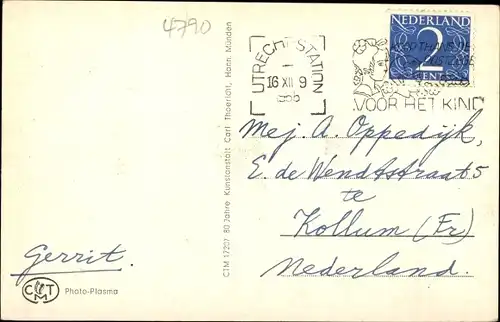 4790
NEDERLAND
2
CENT
UTRECHT-STATION
16 XII 9
VOOR HET KIND
Mej. A. Oppedijk,
E. de Wendtstraat 5
te
Kollum (Fr)
Nederland.
Gerrit.
CTM
Photo-Plasma
CTM 17207 80 Jahre Kunstanstalt Carl Thoericht, Hann. Münden